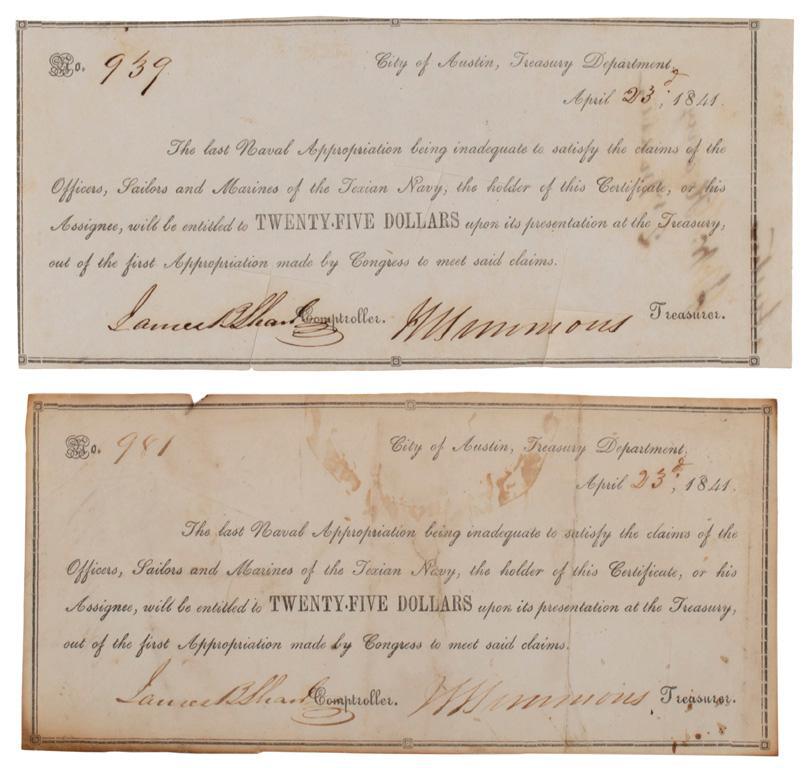 No. 939 City of Austin, Treasury Department,
April 23d, 1841.
The last Naval Appropriation being inadequate to satisfy the claims of the
Officers, Sailors and Marines of the Texian Navy, the holder of this Certificate, or his
Assignee, will be entitled to TWENTY-FIVE DOLLARS upon its presentation at the Treasury,
out of the first Appropriation made by Congress to meet said claims.
James B Shaw Comptroller. W Simmons Treasurer.
No. 981 City of Austin, Treasury Department,
April 23d, 1841.
The last Naval Appropriation being inadequate to satisfy the claims of the
Officers, Sailors and Marines of the Texian Navy, the holder of this Certificate, or his
Assignee, will be entitled to TWENTY-FIVE DOLLARS upon its presentation at the Treasury,
out of the first Appropriation made by Congress to meet said claims.
James B Shaw Comptroller. W Simmons Treasurer.